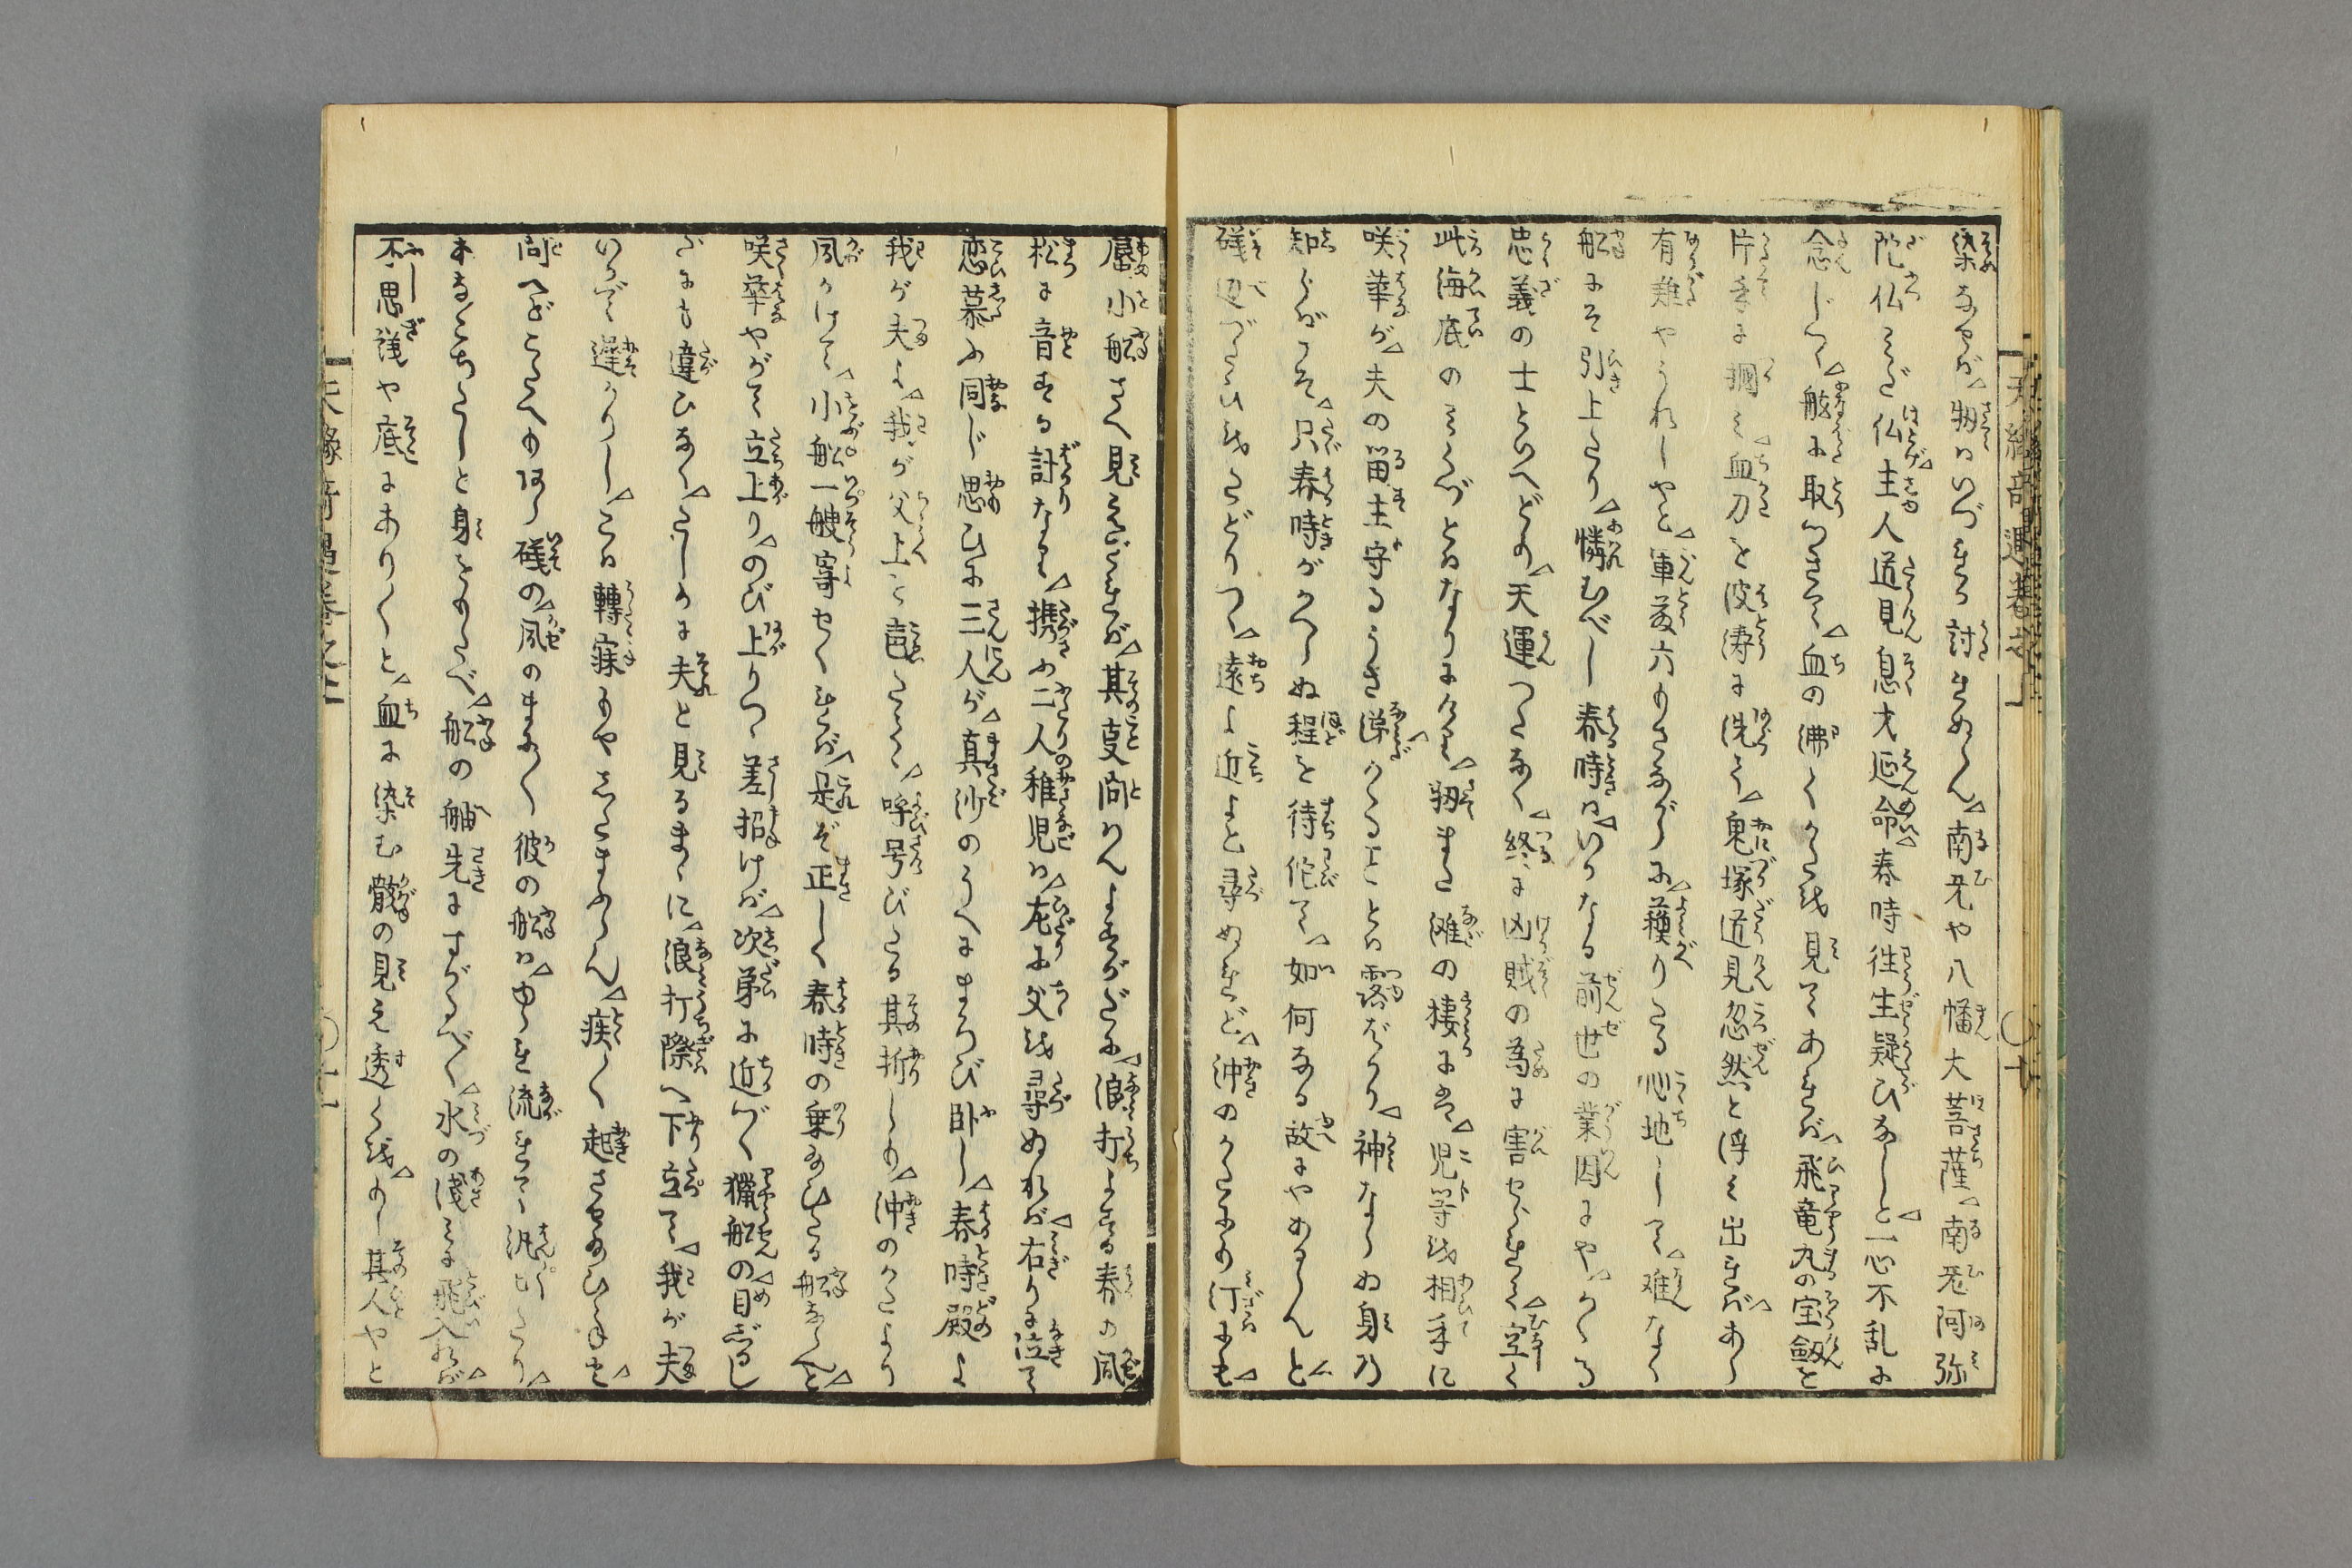 染なせば扨はいづれ討れぬらん南无や八幡大菩薩南无阿弥
陀仏みだ仏主人道見息才延命春時往生疑ひなしと一心不乱に
念じつゝ舷に取つきて血の沸くかたを見てあれば飛竜丸の宝剱を
片手に掴み血刀を波濤に洗ひ鬼塚道見忽然と浮み出ればあら
有難やうれしやと軍藤六もさながらに蘓りたる心地して难なく
船にぞ引上たり憐むべし春時はいかなる前世の業因にやかゝる
忠義の士といへども天運つたなく終に凶賊の為に害せられて空く
此海底のみくづとはなりにけり扨また滩の棲には児等を相手に
咲華が夫の留主守るうさ涙かゝることとは露ばかり神ならぬ身乃
知らばこそ只春時がかへらぬ程を待侘て如何なる故にやあるらんと
礒辺づたひをたどりつゝ遠よ近よと尋ぬれど沖のかたにも汀にも
蜑小船さへ見えざれば其叓問はんよすがだに浪打よする春の風
松に音する計なり携ふ二人稚児は左に父を尋ぬれば右りに泣て
恋慕ふ同じ思ひに三人が真沙のうへにまろび卧し春時殿よ
我が夫よ我が父上と声たてゝ呼号びたる其折しも沖のかたより
風かけて小船一艘寄せくれば是ぞ正しく春時の乗給ひたる船ならんと
咲華やがて立上りのび上りつゝ差招けば次第に近づく猟船の目じるし
さにも違ひなくたしかに夫と見るまゝに浪打際へ下り立て我が夫
いかで遅かりしこは轉寐もやしたまふらん疾く起させ給ひねと
問へどこたへもあら礒の風のまに〳〵彼の船はゆられ流れて汎ひたり
本意なくうちたしと身をのべ船の舳先にすがるべく水の浅みに飛入れば
不思議や底にあり〳〵と血に染む骸の見え透くをもし其人やと